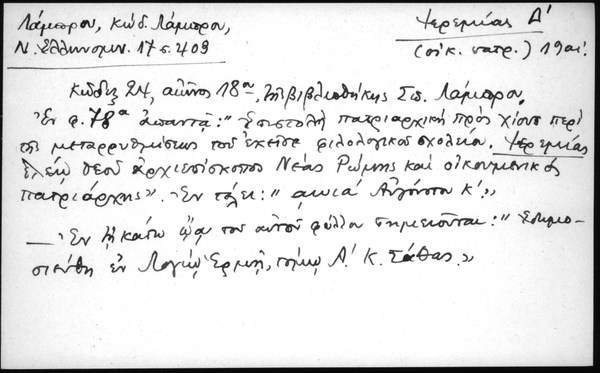 Λάμπρου, Κώδ. Λάμπρου,
Ν. Ἑλληνομν. 17 σ. 409
Ἱερεμίας Δ'
(οἰκ. πατρ.) 19 αἰ.
Κώδιξ 24, αἰῶνος 18ου, τῆς βιβλιοθήκης Σπ. Λάμπρου.
Ἐν φ. 78α ἀπαντᾷ: "Ἐπιστολὴ πατριαρχικὴ πρὸς Χίους περὶ
τῆς μεταρρυθμίσεως τοῦ ἐκεῖσε φιλολογικοῦ σχολείου. Ἱερεμίας
ἐλέῳ θεοῦ ἀρχιεπίσκοπος Νέας Ρώμης καὶ οἰκουμενικὸς
πατριάρχης». Ἐν τέλει: "αωια' Αὐγούστου κ'.»
— Ἐν τῇ κάτω ᾤᾳ τοῦ αὐτοῦ φύλλου σημειοῦται: "Ἐδημο-
σιεύθη ἐν Λογίῳ Ἑρμῇ, τόμῳ Α'. Κ. Σάθας.»